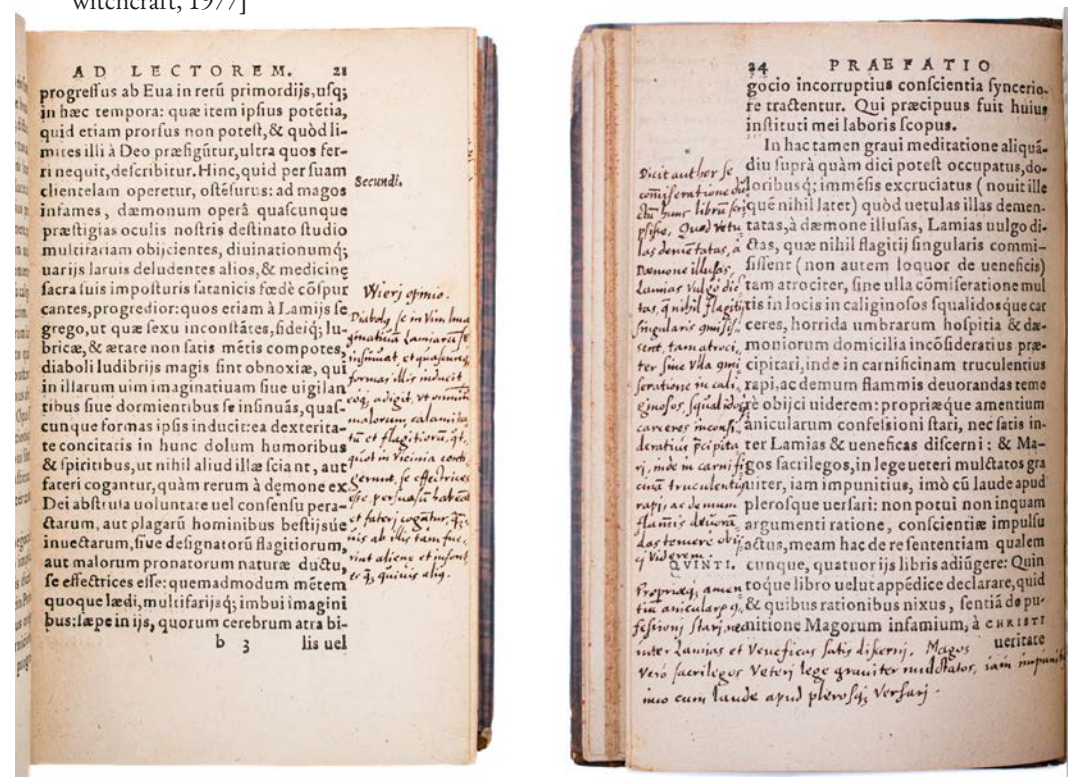 witchcraft, 1977]
AD LECTOREM. 21
progreſſus ab Eua in rerū primordijs, uſq;
in hæc tempora: quæ item ipſius potētia,
quid etiam prorſus non poteſt, & quòd li-
mites illi à Deo præfigūtur, ultra quos fer-
ri nequit, deſcribitur. Hinc, quid per ſuam
clientelam operetur, oſtēſurus: ad magos
infames, dæmonum operâ quaſcunque
præſtigias oculis noſtris deſtinato ſtudio
multifariam obijcientes, diuinationumq́;
uarijs laruis deludentes alios, & medicinę
ſacra ſuis impoſturis ſatanicis fœdè cōſpur
cantes, progredior: quos etiam à Lamijs ſe
grego, ut quæ ſexu inconſtātes, fideiq́; lu-
bricæ, & ætate non ſatis mētis compotes,
diaboli ludibrijs magis ſint obnoxiæ, qui
in illarum uim imaginatiuam ſiue uigilan
tibus ſiue dormientibus ſe inſinuās, quaſ-
cunque formas ipſis inducit: ea dexterita-
te concitatis in hunc dolum humoribus
& ſpiritibus, ut nihil aliud illæ ſciant, aut
fateri cogantur, quàm rerum à dęmone ex
Dei abſtruſa uoluntate uel conſenſu pera-
ctarum, aut plagarū hominibus beſtijsúe
inuectarum, ſiue deſignatorū flagitiorum,
aut malorum pronatorum naturæ ductu,
ſe effectrices eſſe: quemadmodum mētem
quoque lædi, multifarijsq́; imbui imagini
bus: ſæpe in ijs, quorum cerebrum atra bi-
b 3 lis uel
Secundi.
Wierj opinio.
Diabolꝰ ſe in Vim Ima
ginatiuā Lamiarū ſe
inſinuat, et quaſcunq́
formas illis inducit
eoq́; adigit, vt omniū
malorum calamita
tū et flagitiorū, q̄
quot in vicinia conti
gerint, ſe effectrices
eſſe, perſuaſū habeāt
et faterj cogātur,
nis ab illis tam fue
rint alienæ et inſont
es q́; quiuis aliꝰ.
24 PRAEFATIO
gocio incorruptius conſcientia ſyncerio-
re tractentur. Qui præcipuus fuit huius
inſtituti mei laboris ſcopus.
In hac tamen graui meditatione aliquā-
diu ſuprà quàm dici poteſt occupatus, do-
loribusq́; immēſis excruciatus (nouit ille
quē nihil latet) quòd uetulas illas demen-
tatas, à dæmone illuſas, Lamias uulgo di-
ctas, quæ nihil flagitij ſingularis commi-
ſiſſent (non autem loquor de ueneficis)
tam atrociter, ſine ulla cōmiſeratione mul
tis in locis in caliginoſos ſqualidosque car
ceres, horrida umbrarum hoſpitia & dæ-
moniorum domicilia incōſideratius præ-
cipitari, inde in carnificinam truculentius
rapi, ac demum flammis deuorandas teme
re obijci uiderem: propriæque amentium
anicularum confeſsioni ſtari, nec ſatis in-
ter Lamias & ueneficas diſcerni: & Ma-
gos ſacrilegos, in lege ueteri mulctatos gra
uiter, iam impunitius, imò cū laude apud
pleroſque uerſari: non potui non inquam
argumenti ratione, conſcientiæ impulſu
actus, meam hac de re ſententiam qualem
cunque, quatuor ijs libris adiūgere: Quin
toque libro uelut appēdice declarare, quid
& quibus rationibus nixus, ſentiā de pu-
nitione Magorum infamium, à CHRISTI
ueritate
Dicit author ſe
cōmiſeratione du
ctū hunc librū ſcri
pſiſſe, Quod Vetu
las demētatas, à
Dæmone illuſas,
Lamias Vulgo dic
tas, q̄ nihil flagitij
ſingularis cōmiſiſ
ſent, tam atroci
ter ſine Vlla cōmi
ſeratione in cali
ginoſos, ſqualidosq́
carceres inconſi
deratius p̄cipita
rj, inde in carnifi
cinā truculentiꝰ
rapi, ac demum
flāmis deuorā
das temere obij
cj Viderem.
QVINTI.
Propriæq́; amen
tiū anicularū cō
feſsionj ſtarj, nec
inter Lamias et Veneficas ſatis diſcernj. Magos
Verò ſacrilegos Veterj lege grauiter mulctatos, iam impunitiꝰ
imo cum laude apud pleroſq́; Verſarj.